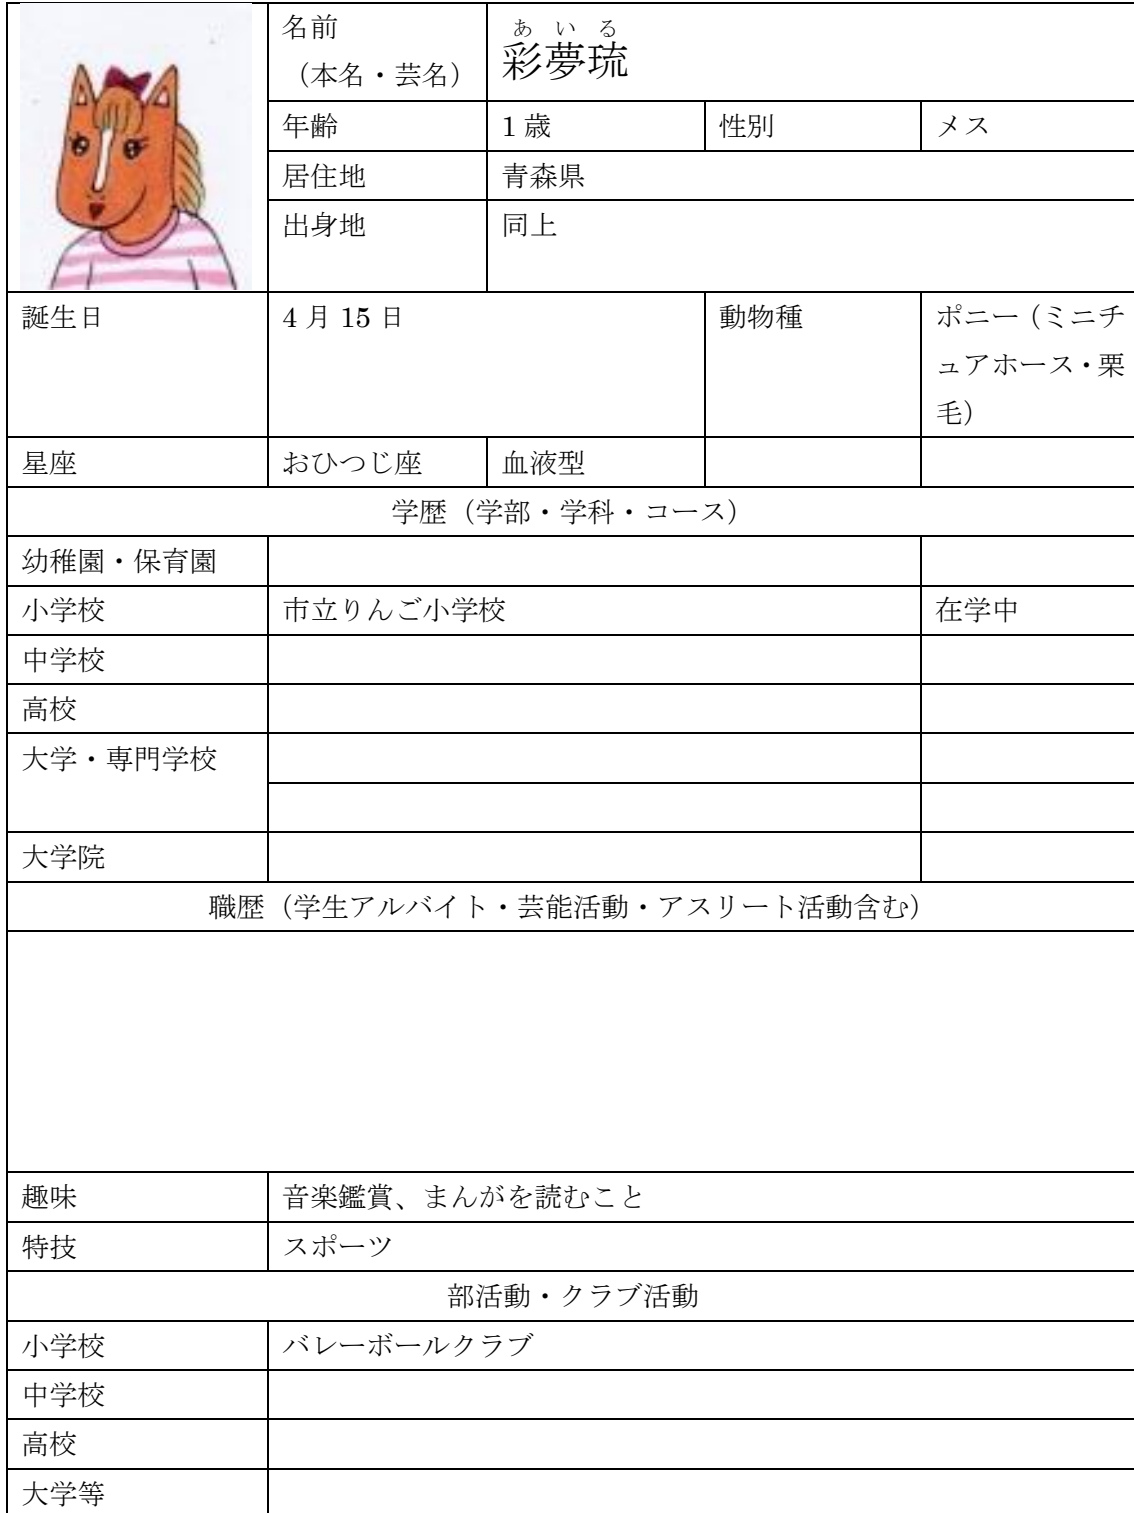 名前
（本名・芸名）
あいる
彩夢琉
年齢 1歳 性別 メス
居住地 青森県
出身地 同上
誕生日 4月15日 動物種 ポニー（ミニチ
ュアホース・栗
毛）
星座 おひつじ座 血液型
学歴（学部・学科・コース）
幼稚園・保育園
小学校 市立りんご小学校 在学中
中学校
高校
大学・専門学校
大学院
職歴（学生アルバイト・芸能活動・アスリート活動含む）
趣味 音楽鑑賞、まんがを読むこと
特技 スポーツ
部活動・クラブ活動
小学校 バレーボールクラブ
中学校
高校
大学等